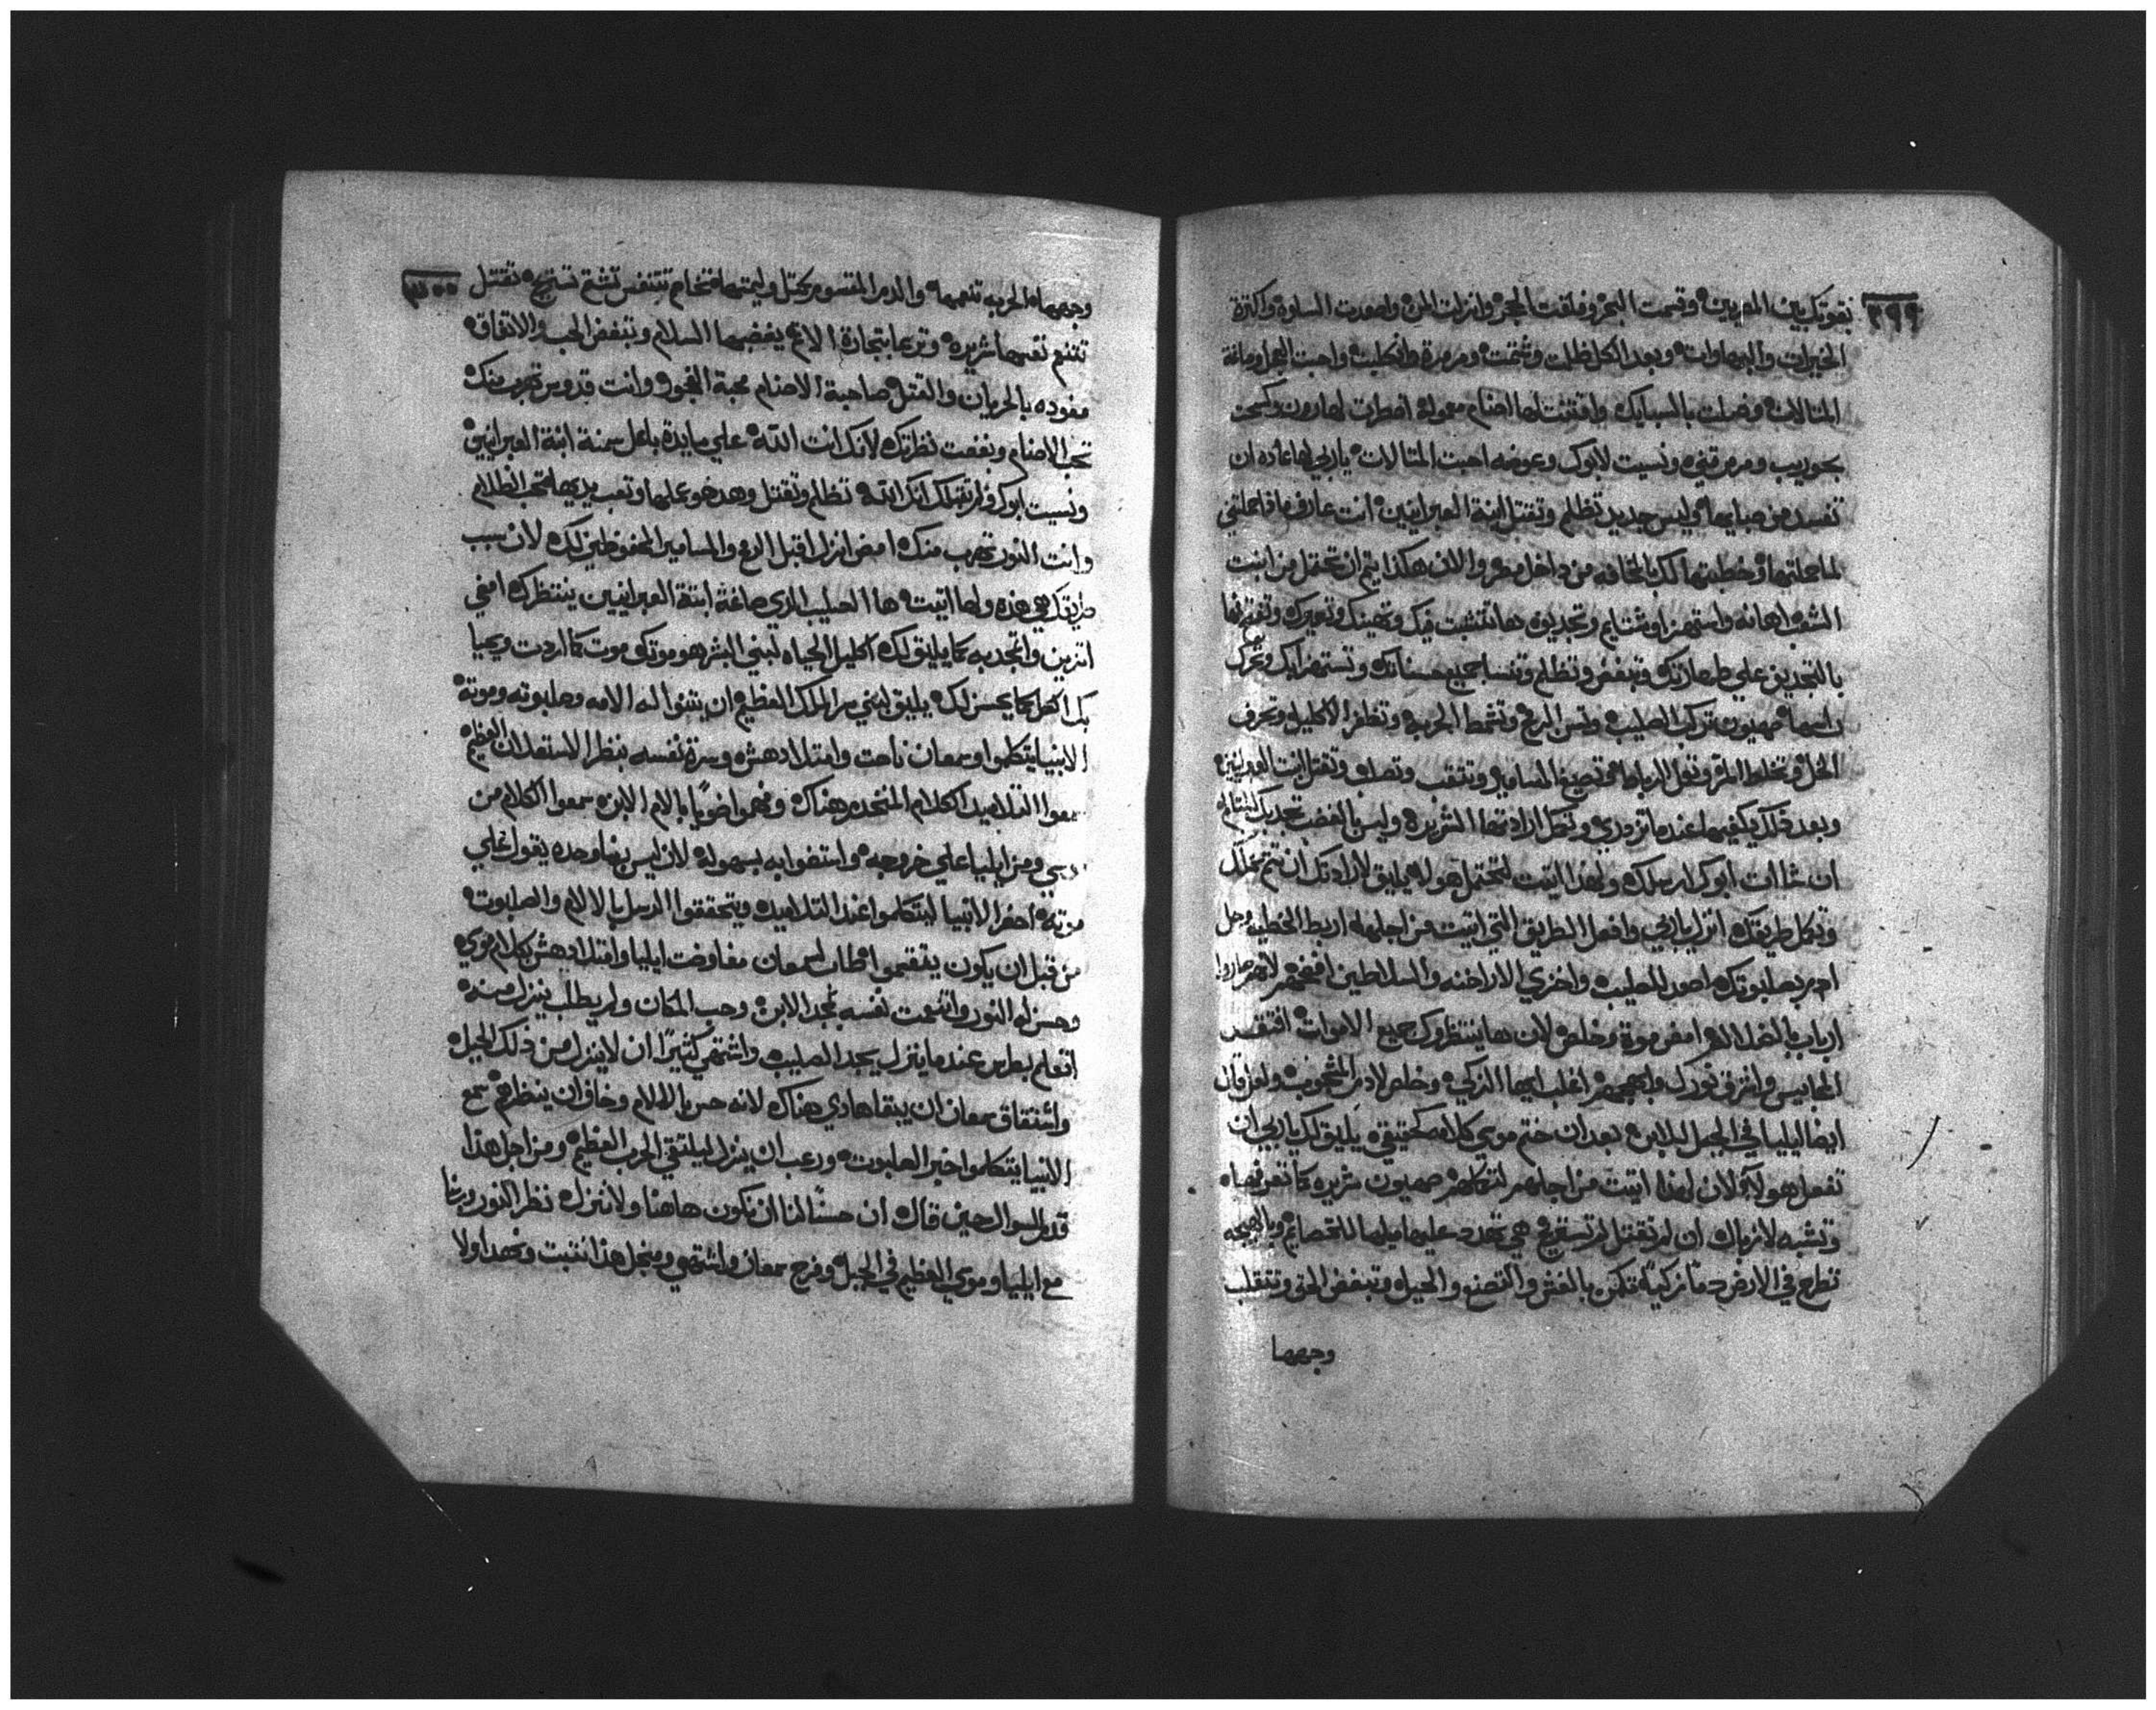 ٢٩٩
بقوتك بين المصريين وقسمت البحر وفلقت الحجر وانزلت المن واصعدت السلوة واكترة
الخيرات والبهاوات وبعد الكل ظلمت وشتمت ومرمرة وانكلت واحبت العجل وصاغة
المتالات وضلت بالسبايك واقتنت لها اصنام معموله اضطرت لهارون وكسحت
بحوريب ومرمرتني ونسيت لابوك وعوضه احبت المتالات ياربي لها عاده ان
تفسد من صبايها وليس جديد تظلم وتقتل ابنة العبرانيين انت عارف ما عملتني
لما عملتها وخطبتها لك المخافه من داخل مصر والان هكذا يتم ان تحتمل من ابنت
الشعب اهانه واستهزا وشتايم وتجديف هانتشبت فيك وتهينك وتعيرك وتفتح فها
بالتجديف علي طهارتك وتبغض وتظلم وتنسا جميع حسناتك وتستهزا بك وتحرك
راسها صهيون تركب الصليب وتسن الرمح وتشحط الحربه وتظفر الاكليل وتحرف
الخل وتخلط المر وتفتل الرباط وتصيغ المسامير وتتقب وتصلب وتقتل ابنت العبرانيين
وبعد ذلك يكفيها عندما تزدري وتكمل ارادتها الشريره وليس بالغضب تجديك
ان شاات ابوك ارسلك ولهذا اتيت لتحتمل هوله يليق لارادتك ان تتم عملك
وتكمل طريقك انزل ياربي وافعل الطريق التي اتيت من اجلها اربط الخطيه وحل
ادم بصلبوتك اصعد للصليب واخزي الاراخنه والسلاطين افضحهم لانهم صاروا
ارباب بالضلاله امض موة وخلص لان ها ينتظروك جميع الاموات افتقد
المحابيس واشرق نورك وابهجهم اغلب ايها الزكي وخلص لادم المشجوب وقال
ايضا ايليا في الجبل للابن بعد ان ختم موسي كلامه كحقيقي يليق لك ياربي ان
تفعل هولاء لان لهذا اتيت من اجلهم لتكلهم صهيون شريره كما تعرفها
وتشبه لازبال ان لم تقتل لم تستريح هي تهدد عليها ميلها للخصايم وبالبهجه
تطرح في الارض دما زكيا تكمن بالغش والتصنع والحيله وتبغض الحق وتتقلب
وجهها
٣٠٠
وجهها الحربه تنهمها والدم المقسوم يحتل وليمتها تخام تتنفس تشتم تستريح تقتل
تتنعم نفسها شريره وترعا بتجارة الاثم يغضبها السلام وتبغض الحب والاتفاق
مفوده بالحريان والقتل صاحبة الاصنام محبة الفجور وانت قدوس تهرب منك
تحب الاصنام وبغضت نظرتك لانك انت الله علي مايدة باعل سمنة ابنة العبرانيين
ونسيت ابوك ولم تقبلك انك الله تظلم وتقتل وهدهو عملها وتعب يديها تحب الظلام
وانت النور تهرب منك امض انزل اقبل الرمح والمسامير المحفوظين لك لان سبب
طريقك هي هذه ولها اتيت ها الصليب الذي صاغة ابنة العبرانيين ينتظرك امضي
اتزين واتمجد به كما يليق لك اكليل الحياه لبني البشر هو موتك موت كما اردت ويحيا
بك الكل كما يحسن لك يليق لبني سر الملك العظيم ان يتنوا له الامه وصلبوته وموته
الانبيا يتكلموا وسمعان ناحت وامتلا دهش وسرة نفسه بنظر الاستعلان العظيم
سمعوا التلاميد الكلام المتحدر هناك وفهموا ضويا بالام الابن سمعوا الكلام من
موسي ومن ايليا علي خروجه واستضوا به بسهوله لان ليس ربنا وحده يقول علي
موته احضر الانبيا ليتكلموا عند التلاميد ويتحققوا الرسل بالالام والصلبوت
من قبل ان يكون يفتهموا اطابت لسمعان مفاوضت ايليا وامتلا دهش بكلام موسي
وحسن له النور واتنعمت نفسه بمجد الابن وحب المكان ولم يطلب ينزل منه
اتعلم بطرس عندما ينزل يجد الصليب واشتهي كثيرا ان لا ينزل من ذلك الجبل
واشتقاق سمعان ان يبقا هادي هناك لانه حس بالالام وخاف ان ينظرهم سمع
الانبيا يتكلموا خبر الصلبوت ورعب ان ينزل ليلتقي الحرب العظيم ومن اجل هذا
قدم السوال حين قال ان حسنا لنا ان نكون هاهنا ولا ننزل نظر النور وربنا
مع ايليا وموسي العظيم في الجبل وفرح سمعان واشتهي ومنجل هذا نتبت ونهدا ولا